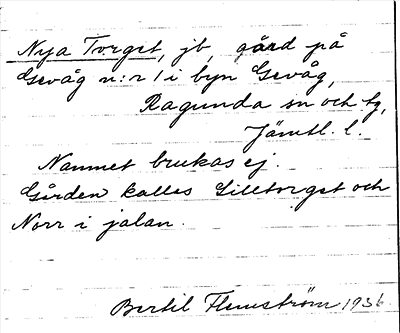 Nya Torget, jb, gård på
Gevåg n:r 1 i byn Gevåg,
Ragunda sn och tg,
Jämtl. l.
Namnet brukas ej.
Gården kallas Lilltorget och
Norr i jalan.
Bertil Flemström 1936